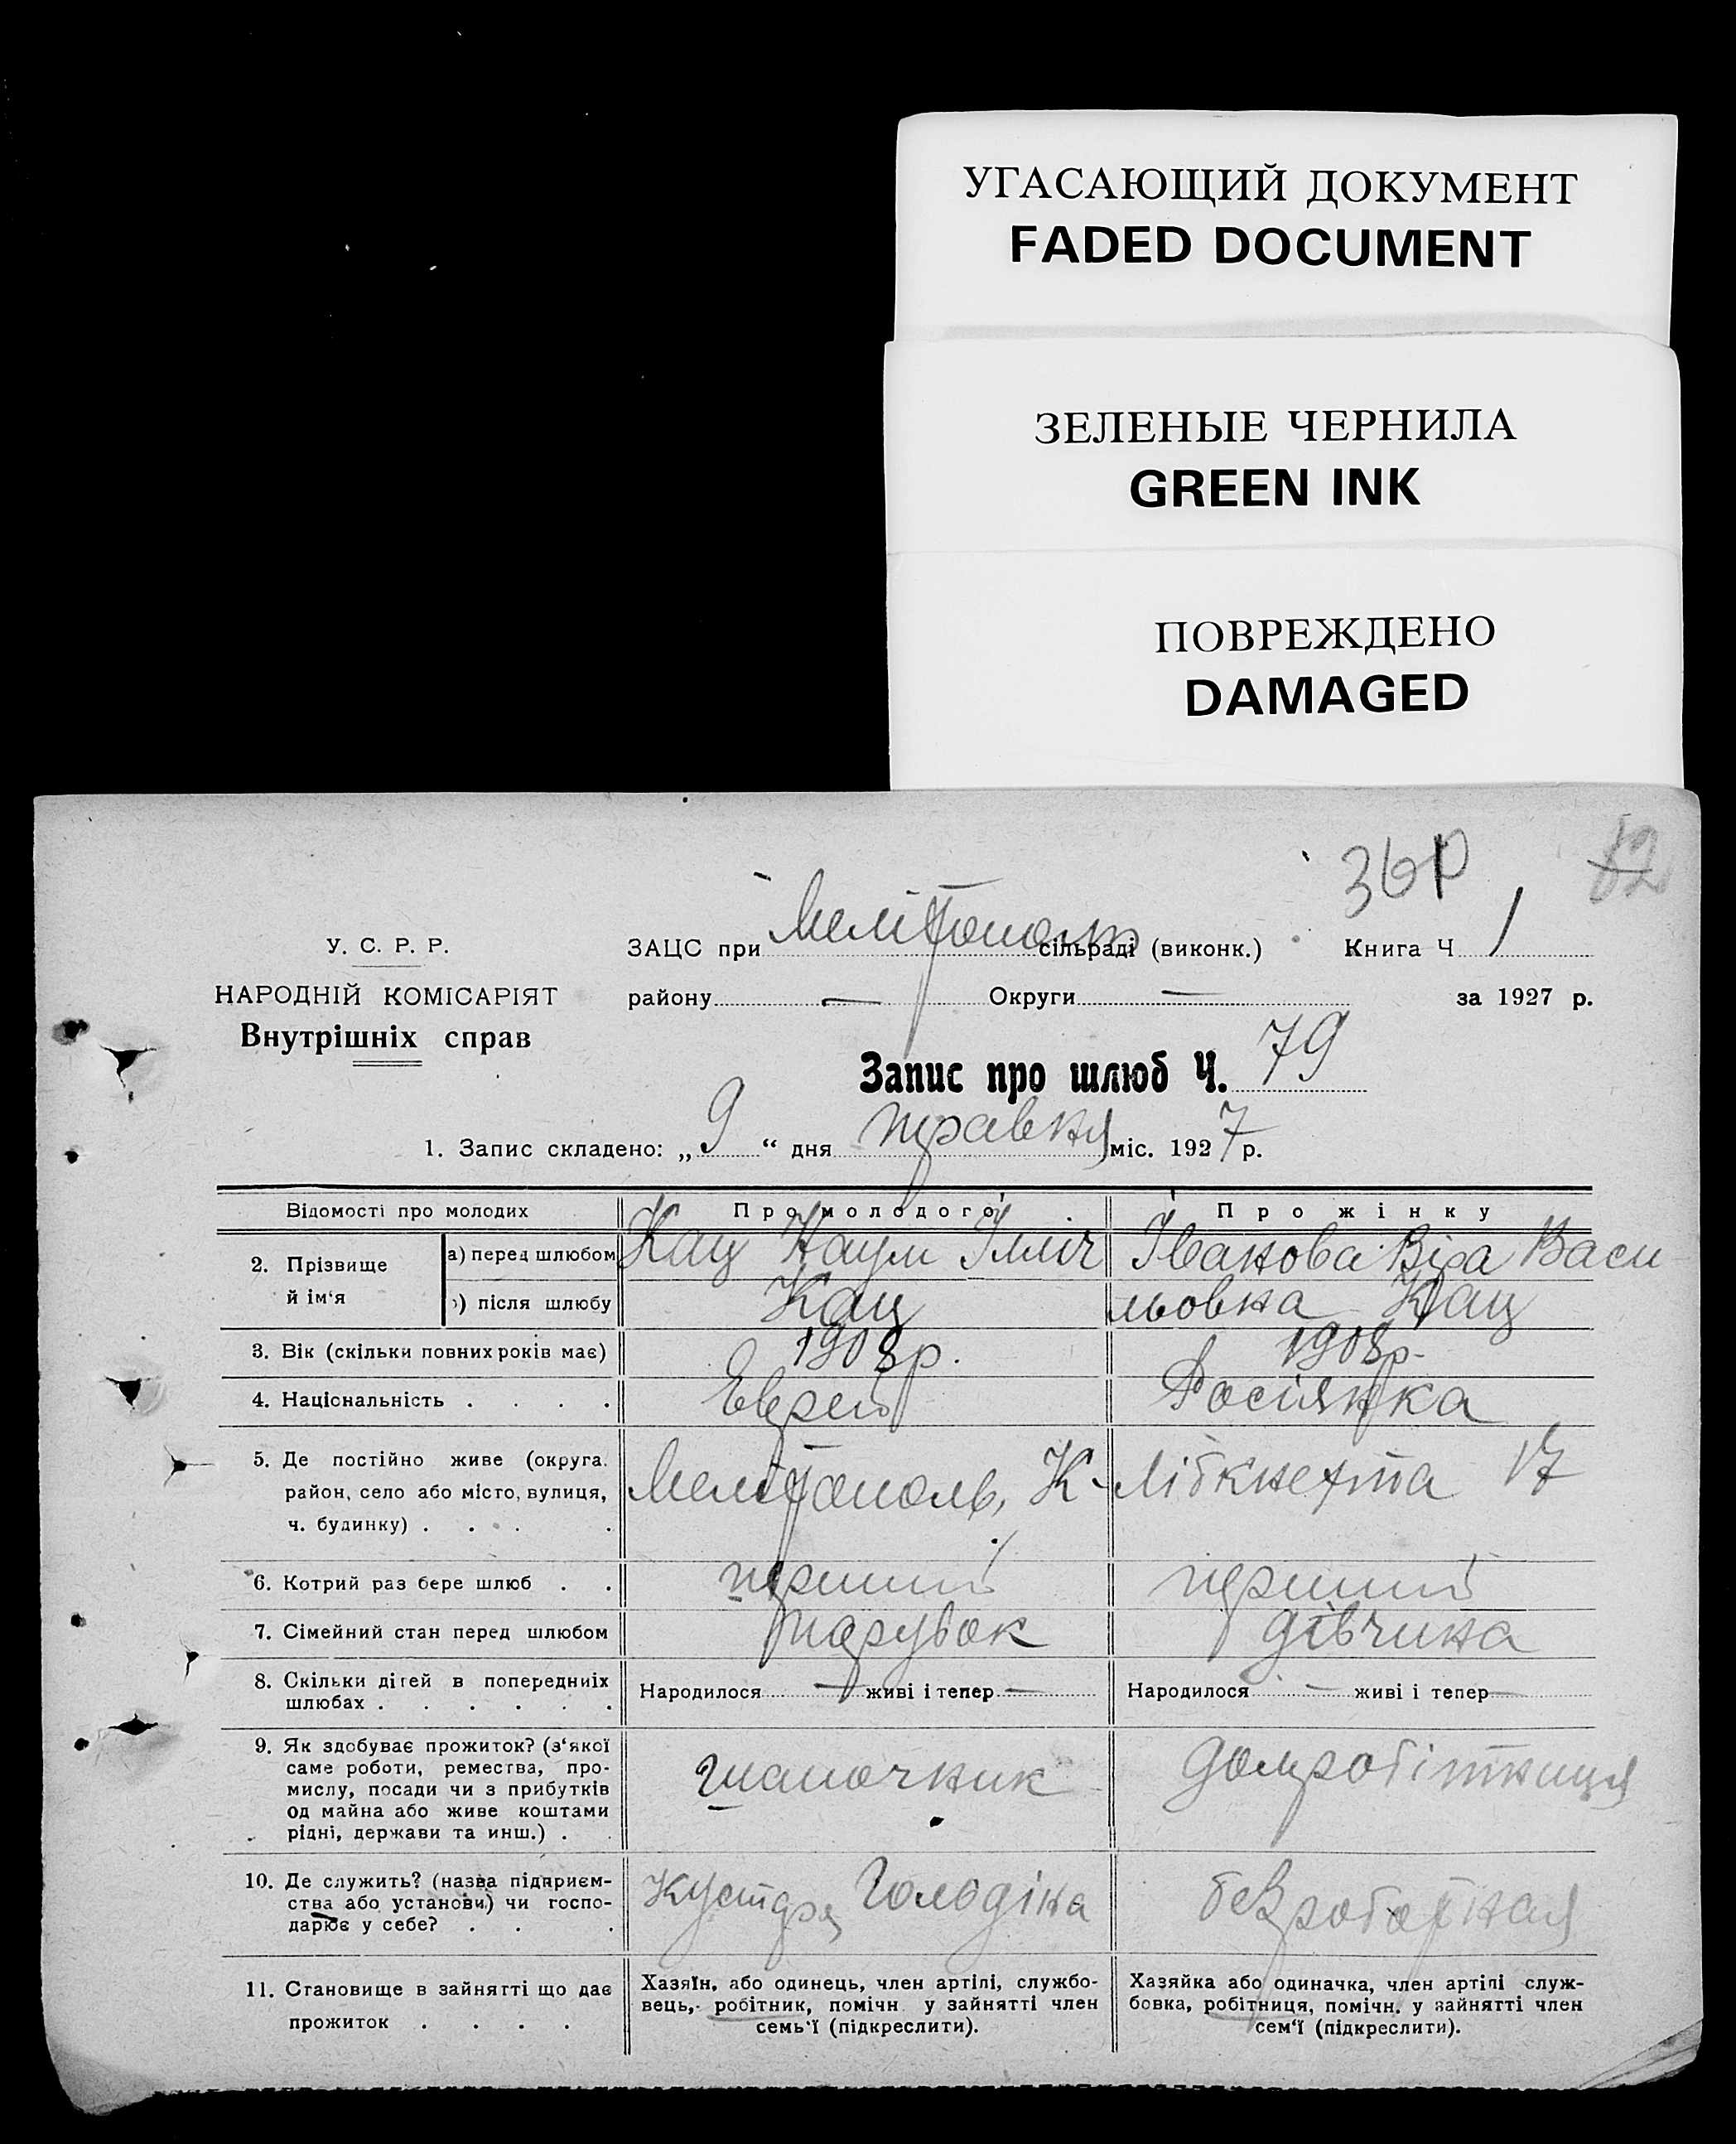 УГАСАЮЩИЙ ДОКУМЕНТ
FADED DOCUMENT
ЗЕЛЕНЫЕ ЧЕРНИЛА
GREEN INK
ПОВРЕЖДЕНО
DAMAGED
У. С. Р. Р.
НАРОДНІЙ КОМІСАРІЯТ
Внутрішніх справ
ЗАЦС при Мелітополь сільраді (виконк.) Книга Ч. 1
району — Округи — за 1927 р.
Запис про шлюб Ч. 79
1. Запис складено: „ 9 “ дня травня міс. 1927 р.
Відомості про молодих Про молодого Про жінку
2. Прізвище й ім'я а) перед шлюбом Кац Наум Ілліч Іванова Віра Васи
) після шлюбу Кац льовна Кац
3. Вік (скільки повних років має) 1908 р. 1908 р.
4. Національність . . . . Еврей Росіянка
5. Де постійно живе (округа,
район, село або місто, вулиця,
ч. будинку) . . . .
Мелітополь, К-Лібкнехта 17
6. Котрий раз бере шлюб . . перший перший
7. Сімейний стан перед шлюбом парубок дівчина
8. Скільки дітей в попередниіх
шлюбах . . . . . .
Народилося — живі і тепер — Народилося — живі і тепер —
9. Як здобуває прожиток? (з'якої
саме роботи, ремества, про-
мислу, посади чи з прибутків
од майна або живе коштами
рідні, держави та инш.) . .
шапочник домробітниця
10. Де служить? (назва підприєм-
ства або установи) чи госпо-
дарює у себе? . . .
Кустаря Голодіна безроботная
11. Становище в зайнятті що дає
прожиток . . . .
Хазяїн, або одинець, член артілі, службо-
вець, робітник, помічн. у зайнятті член
семь'ї (підкреслити).
Хазяйка або одиначка, член артілі служ-
бовка, робітниця, помічн. у зайнятті член
сем'ї (підкреслити).